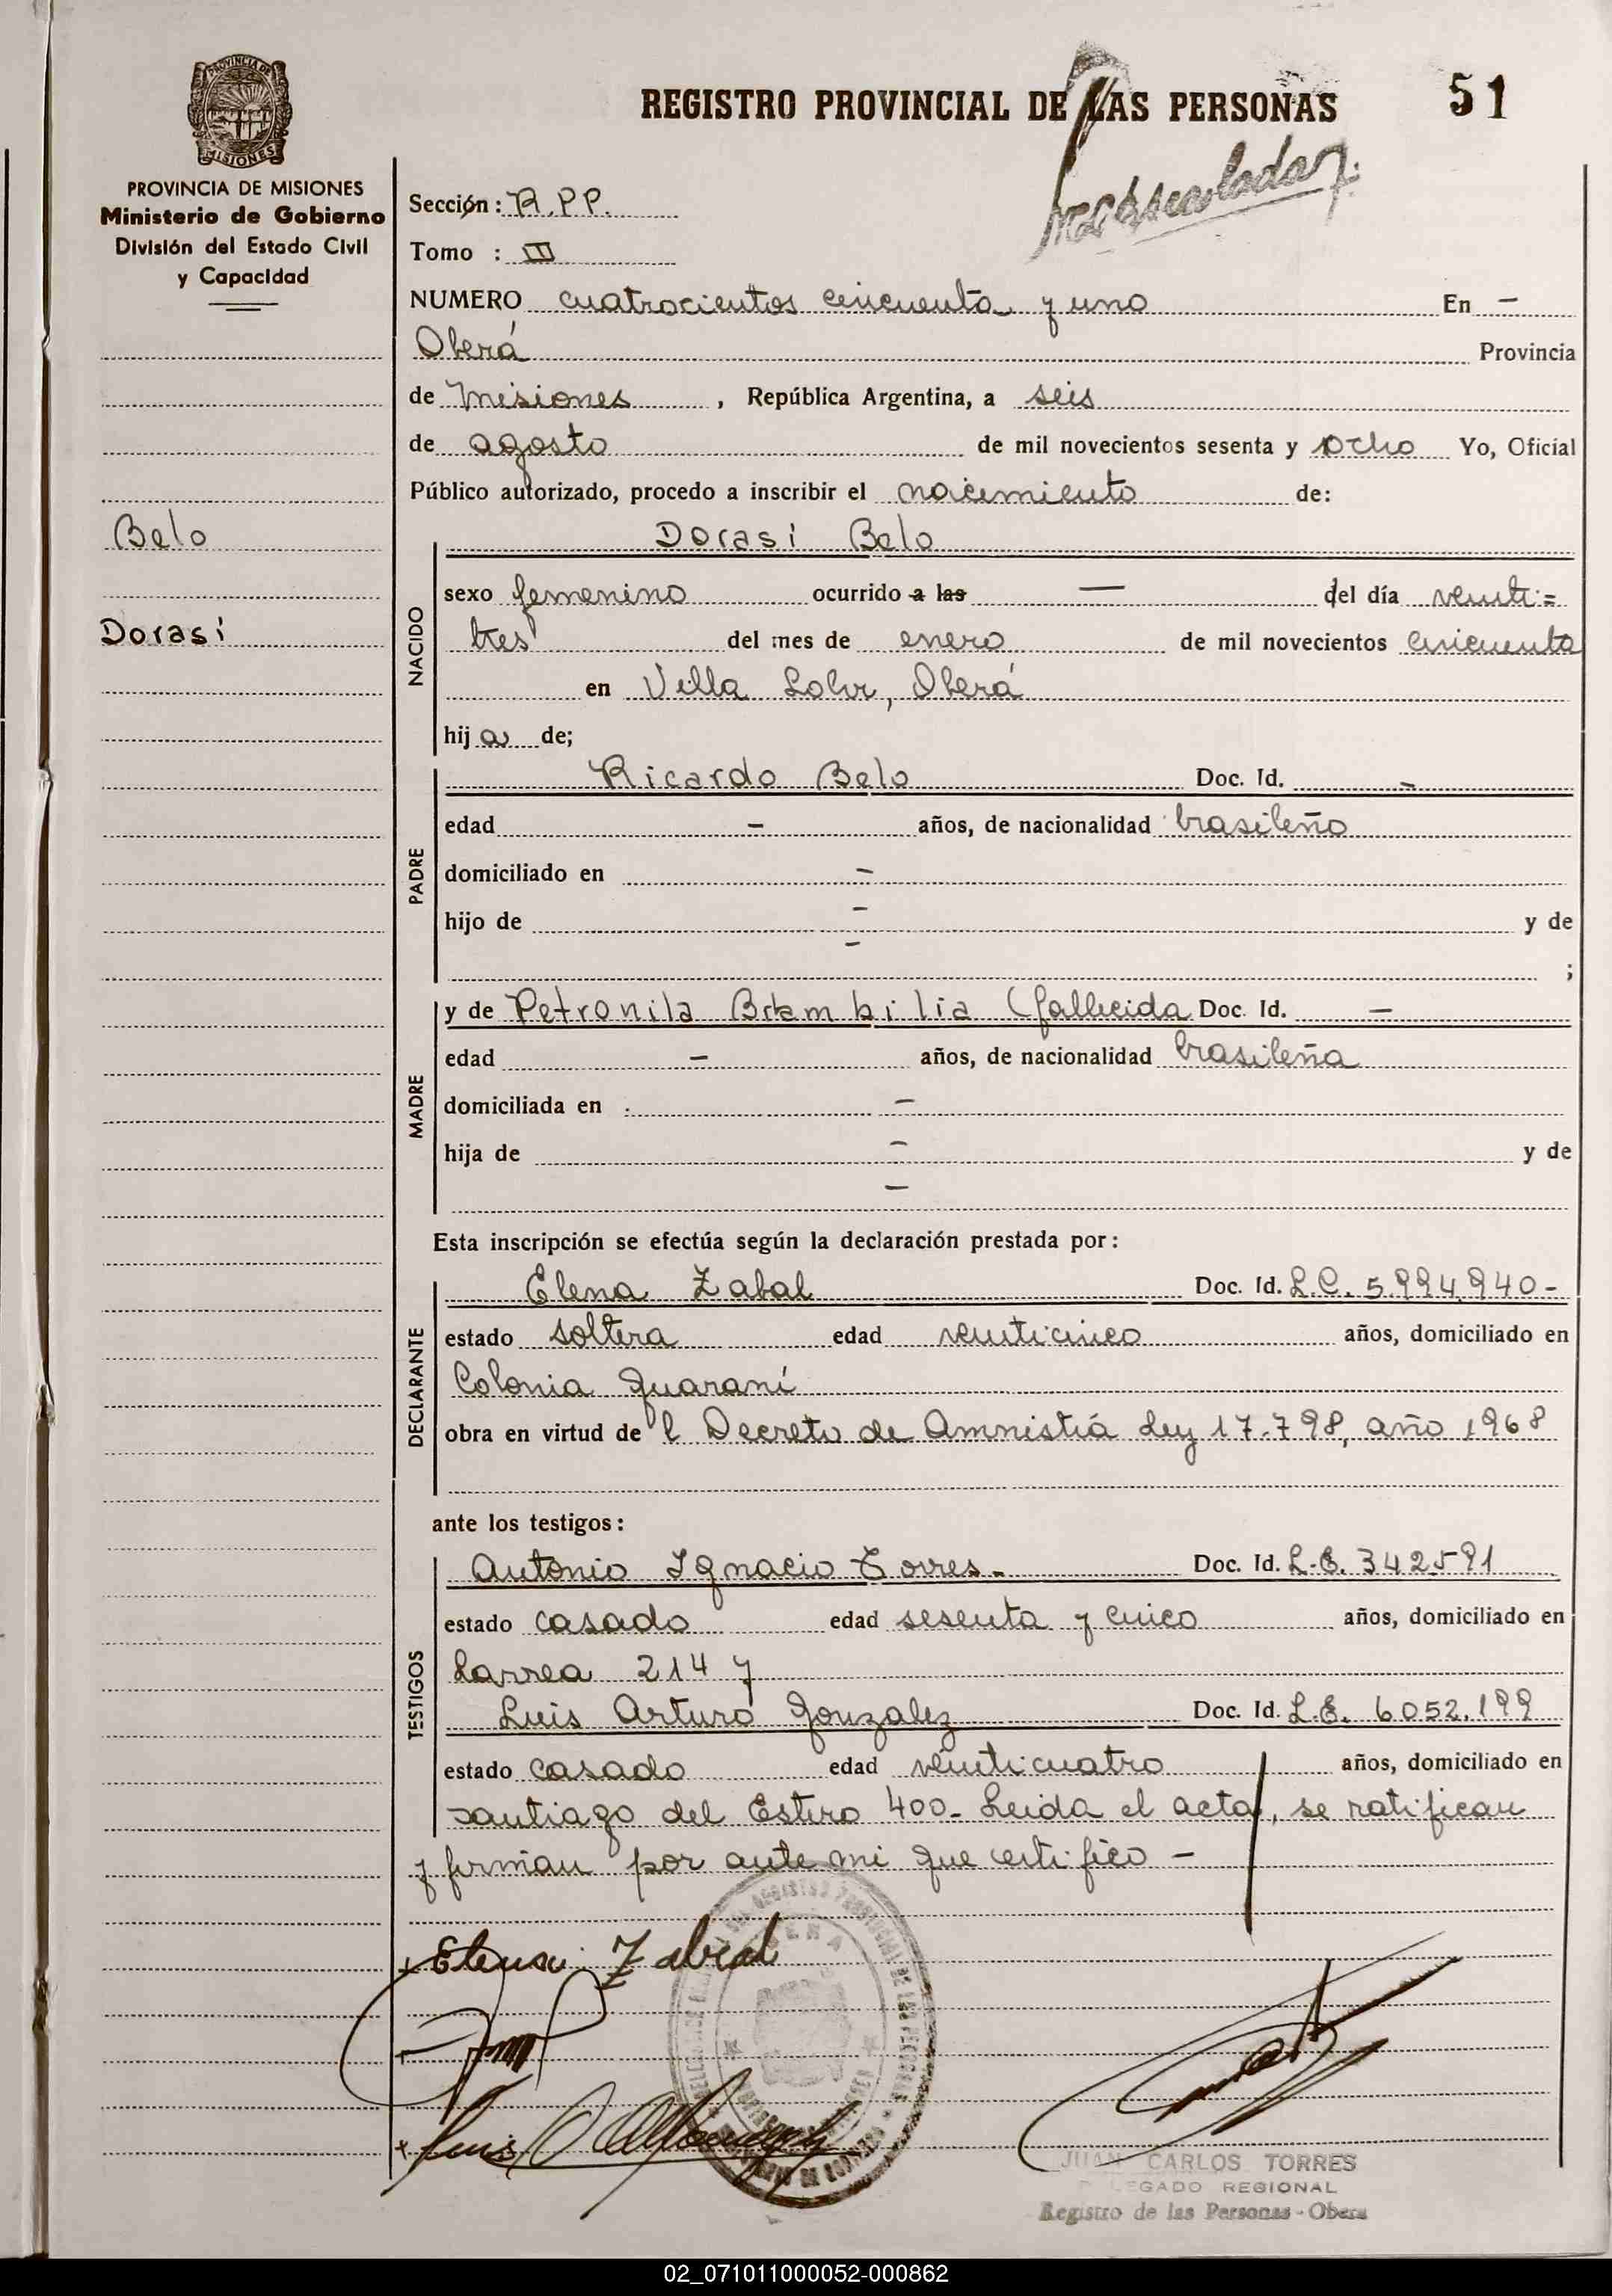 REGISTRO PROVINCIAL DE LAS PERSONAS 51
PROVINCIA DE MISIONES
MISIONES
PROVINCIA DE MISIONES
Ministerio de Gobierno
División del Estado Civil
y Capacidad
Belo
Dorasi
Sección: R.P.P.
Tomo : III
NUMERO cuatrocientos cincuenta y uno En -
Oberá Provincia
de Misiones, República Argentina, a seis
de agosto de mil novecientos sesenta y ocho Yo, Oficial
Público autorizado, procedo a inscribir el nacimiento de:
NACIDO
Dorasi Belo
sexo femenino ocurrido a las — del día veinti=
tres del mes de enero de mil novecientos cincuenta
en Villa Lohr, Oberá
hija de;
PADRE
Ricardo Belo Doc. Id. -
edad - años, de nacionalidad brasileño
domiciliado en -
hijo de - y de
- ;
MADRE
y de Petronila (fallecida Doc. Id. -
edad - años, de nacionalidad brasileña
domiciliada en : -
hija de - y de
-
Esta inscripción se efectúa según la declaración prestada por:
DECLARANTE
Elena Zabal Doc. Id. L.C. 5.994.940-
estado soltera edad veinticinco años, domiciliado en
Colonia Guaraní
obra en virtud de l Decreto de Amnistía Ley 17.798, año 1968
ante los testigos:
TESTIGOS
Antonio Ignacio Torres.- Doc. Id. L.E. 342591
estado casado edad sesenta y cinco años, domiciliado en
Larrea 214 y
Luis Arturo Gonzalez Doc. Id. L.E. 6052.199
estado casado edad veinticuatro años, domiciliado en
Santiago del Estero 400- Leida el acta, se ratifican
y firman por ante mi que certifico -
Elena Zabal
Luis
JUAN CARLOS TORRES
DELEGADO REGIONAL
Registro de las Personas - Obera
02_071011000052-000862